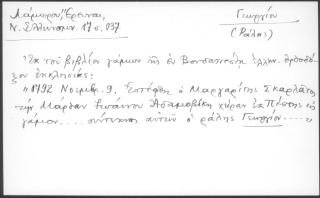 Λάμπρου, Έρευναι,
Ν. Ελληνομν. 17 σ. 037
Γεωργίου
(Ράλης)
Ἐκ τοῦ βιβλίου γάμων τῆς ἐν Βουδαπέστῃ ἑλλην. ὀρθοδό-
ξου ἐκκλησίας:
"1792 Νοεμβρ. 9. Ἐστέφθη ὁ Μαργαρίτης Σκαρλάτος
τὴν Μάρθαν χήραν ἐκ Πέστης εἰς
γάμον.... σύντεκνος αὐτῶν ὁ ράλης Γεωργίου....."